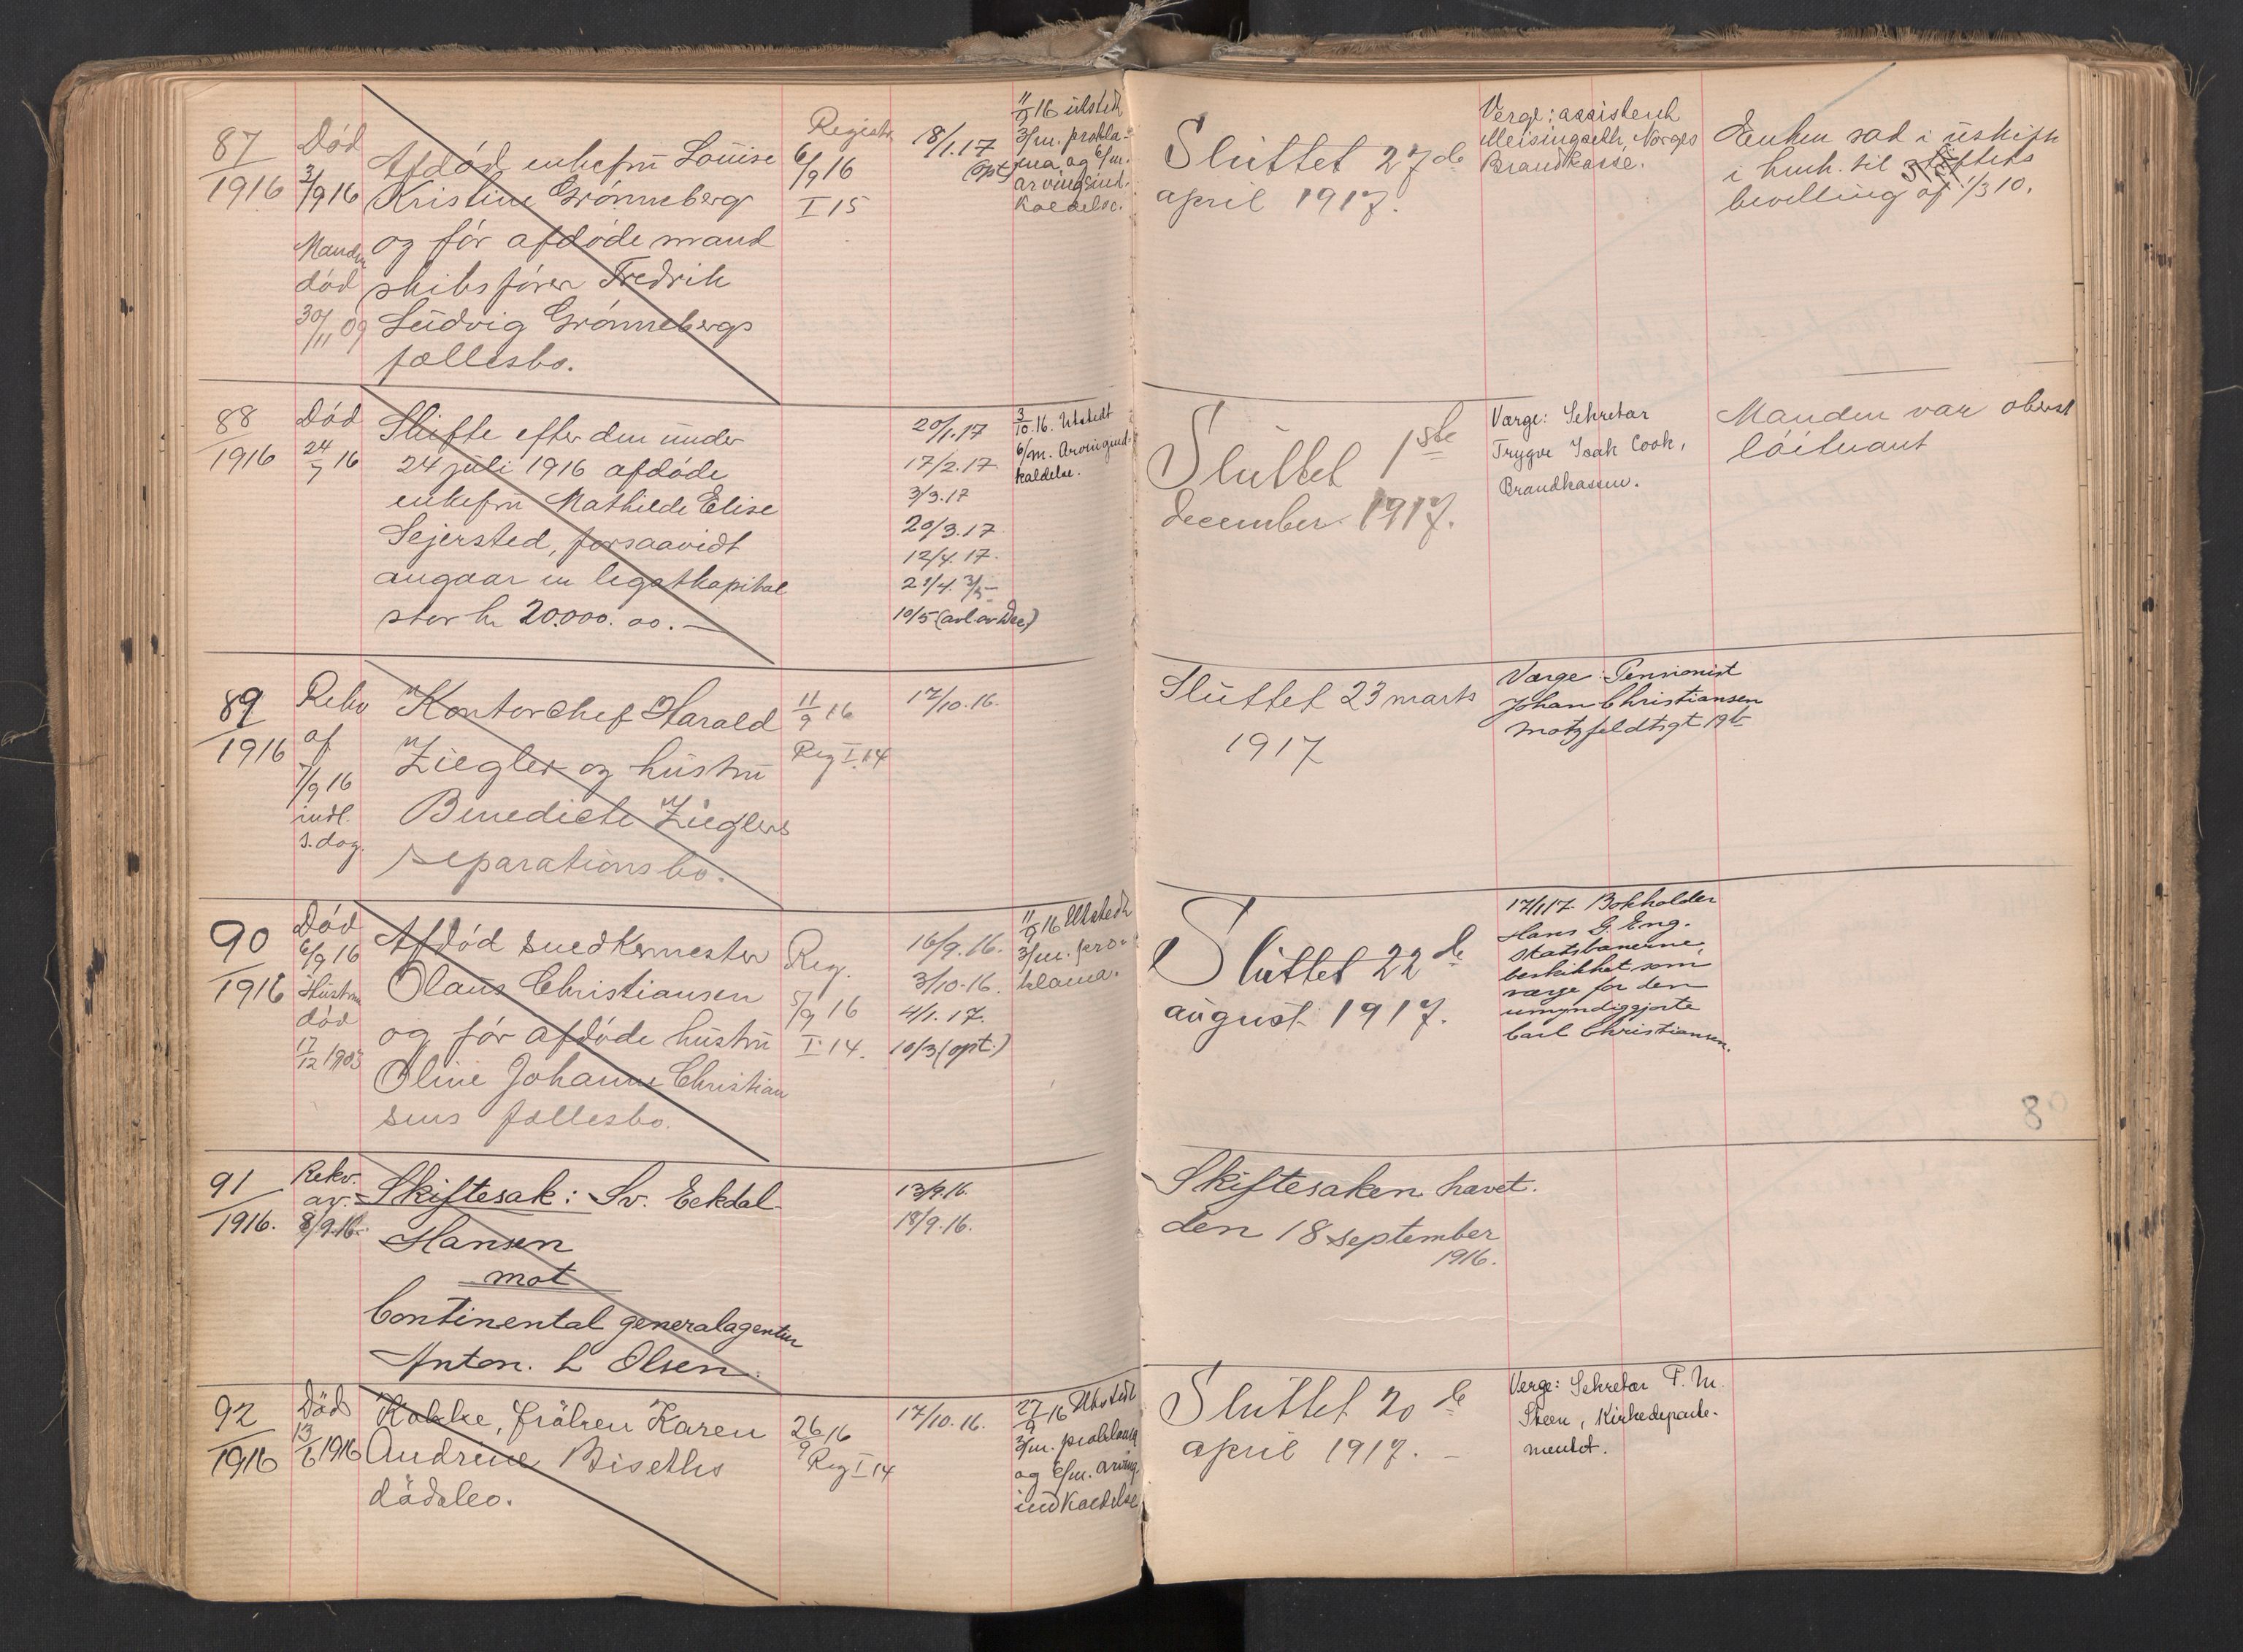 87
1916
Død
3/9 16
Manden
død
30/11 09
Afdød enkefru Louise
Kristine Grønneberg
og før afdøde mand
skibsfører Fredrik
Ludvig Grønnebergs
fællesbo.
Registr
6/9 16
I 15
18/1.17
(opt)
11/9 16 utstedt
3/m. prokla-
ma og 6/m.
arvingsind-
kaldelse.
Sluttet 27de
april 1917.
Verge: assistent
Meisingseth, Norges
Brandkasse.
Enken sad i uskifte
i henh. til
bevilling af 1/3 10.
88
1916
Død
24/7 16
Skifte efter den under
24 juli 1916 afdøde
enkefru Mathilde Elise
Sejersted, forsaavidt
angaar en legatkapital
stor kr 20.000.00.—
20/1.17
17/2.17
3/3.17
20/3.17
12/4.17.
21/4. 3/5
10/5
3/10.16. Utstedt
6/m. Arvingind-
kaldelse.
Sluttet 1ste
december 1917.
Værge: Sekretær
Trygve Isak Cook,
Brandkassen.
Manden var oberst
løitnant
89
1916
Rekv
af
7/9 16
indl.
s. dag.
Kontorchef Harald
Ziegler og hustru
Benedicte Zieglers
separationsbo.
11/9 16
Reg I.14
17/10.16.
Sluttet 23 marts
1917
Værge: Pensionist
Johan Christiansen
Motzfeldtsgt 19b
90
1916
Død
6/9 16
Hustru
død
17/12 1903
Afdød snedkermester
Olaus Christiansen
og før afdøde hustru
Oline Johanne Christian
sens fællesbo.
Reg.
5/9 16
I 14.
16/9.16.
3/10-16.
4/1.17.
10/3 (opt.)
11/9 16 Utstedt
3/m. pro-
klama.
Sluttet 22de
august 1917.
17/1 17. Bokholder
Hans G. Eng.
Statsbanerne,
beskikket som
værge for den
umyndiggjorte
Carl Christiansen.
80
91
1916.
Rekv.
av.
8/9.16.
Skiftesak: Sv. Eckdal-
Hansen
mot
Continental generalagentur
Anton. L Olsen.
13/9.16.
18/9.16.
Skiftesaken hævet.
den 18 september
1916.
92
1916
Død
13/6 1916
Kokke, frøken Karen
Andrine Biseths
dødsbo.
26/9 16
Reg I 14
17/10.16.
27/9 16 Utstedt
3/m. proklama
og 6/m. arving-
indkaldelse
Sluttet 20de
april 1917. —
Verge: Sekretær P. M.
Steen, Kirkedeparte-
mentet.